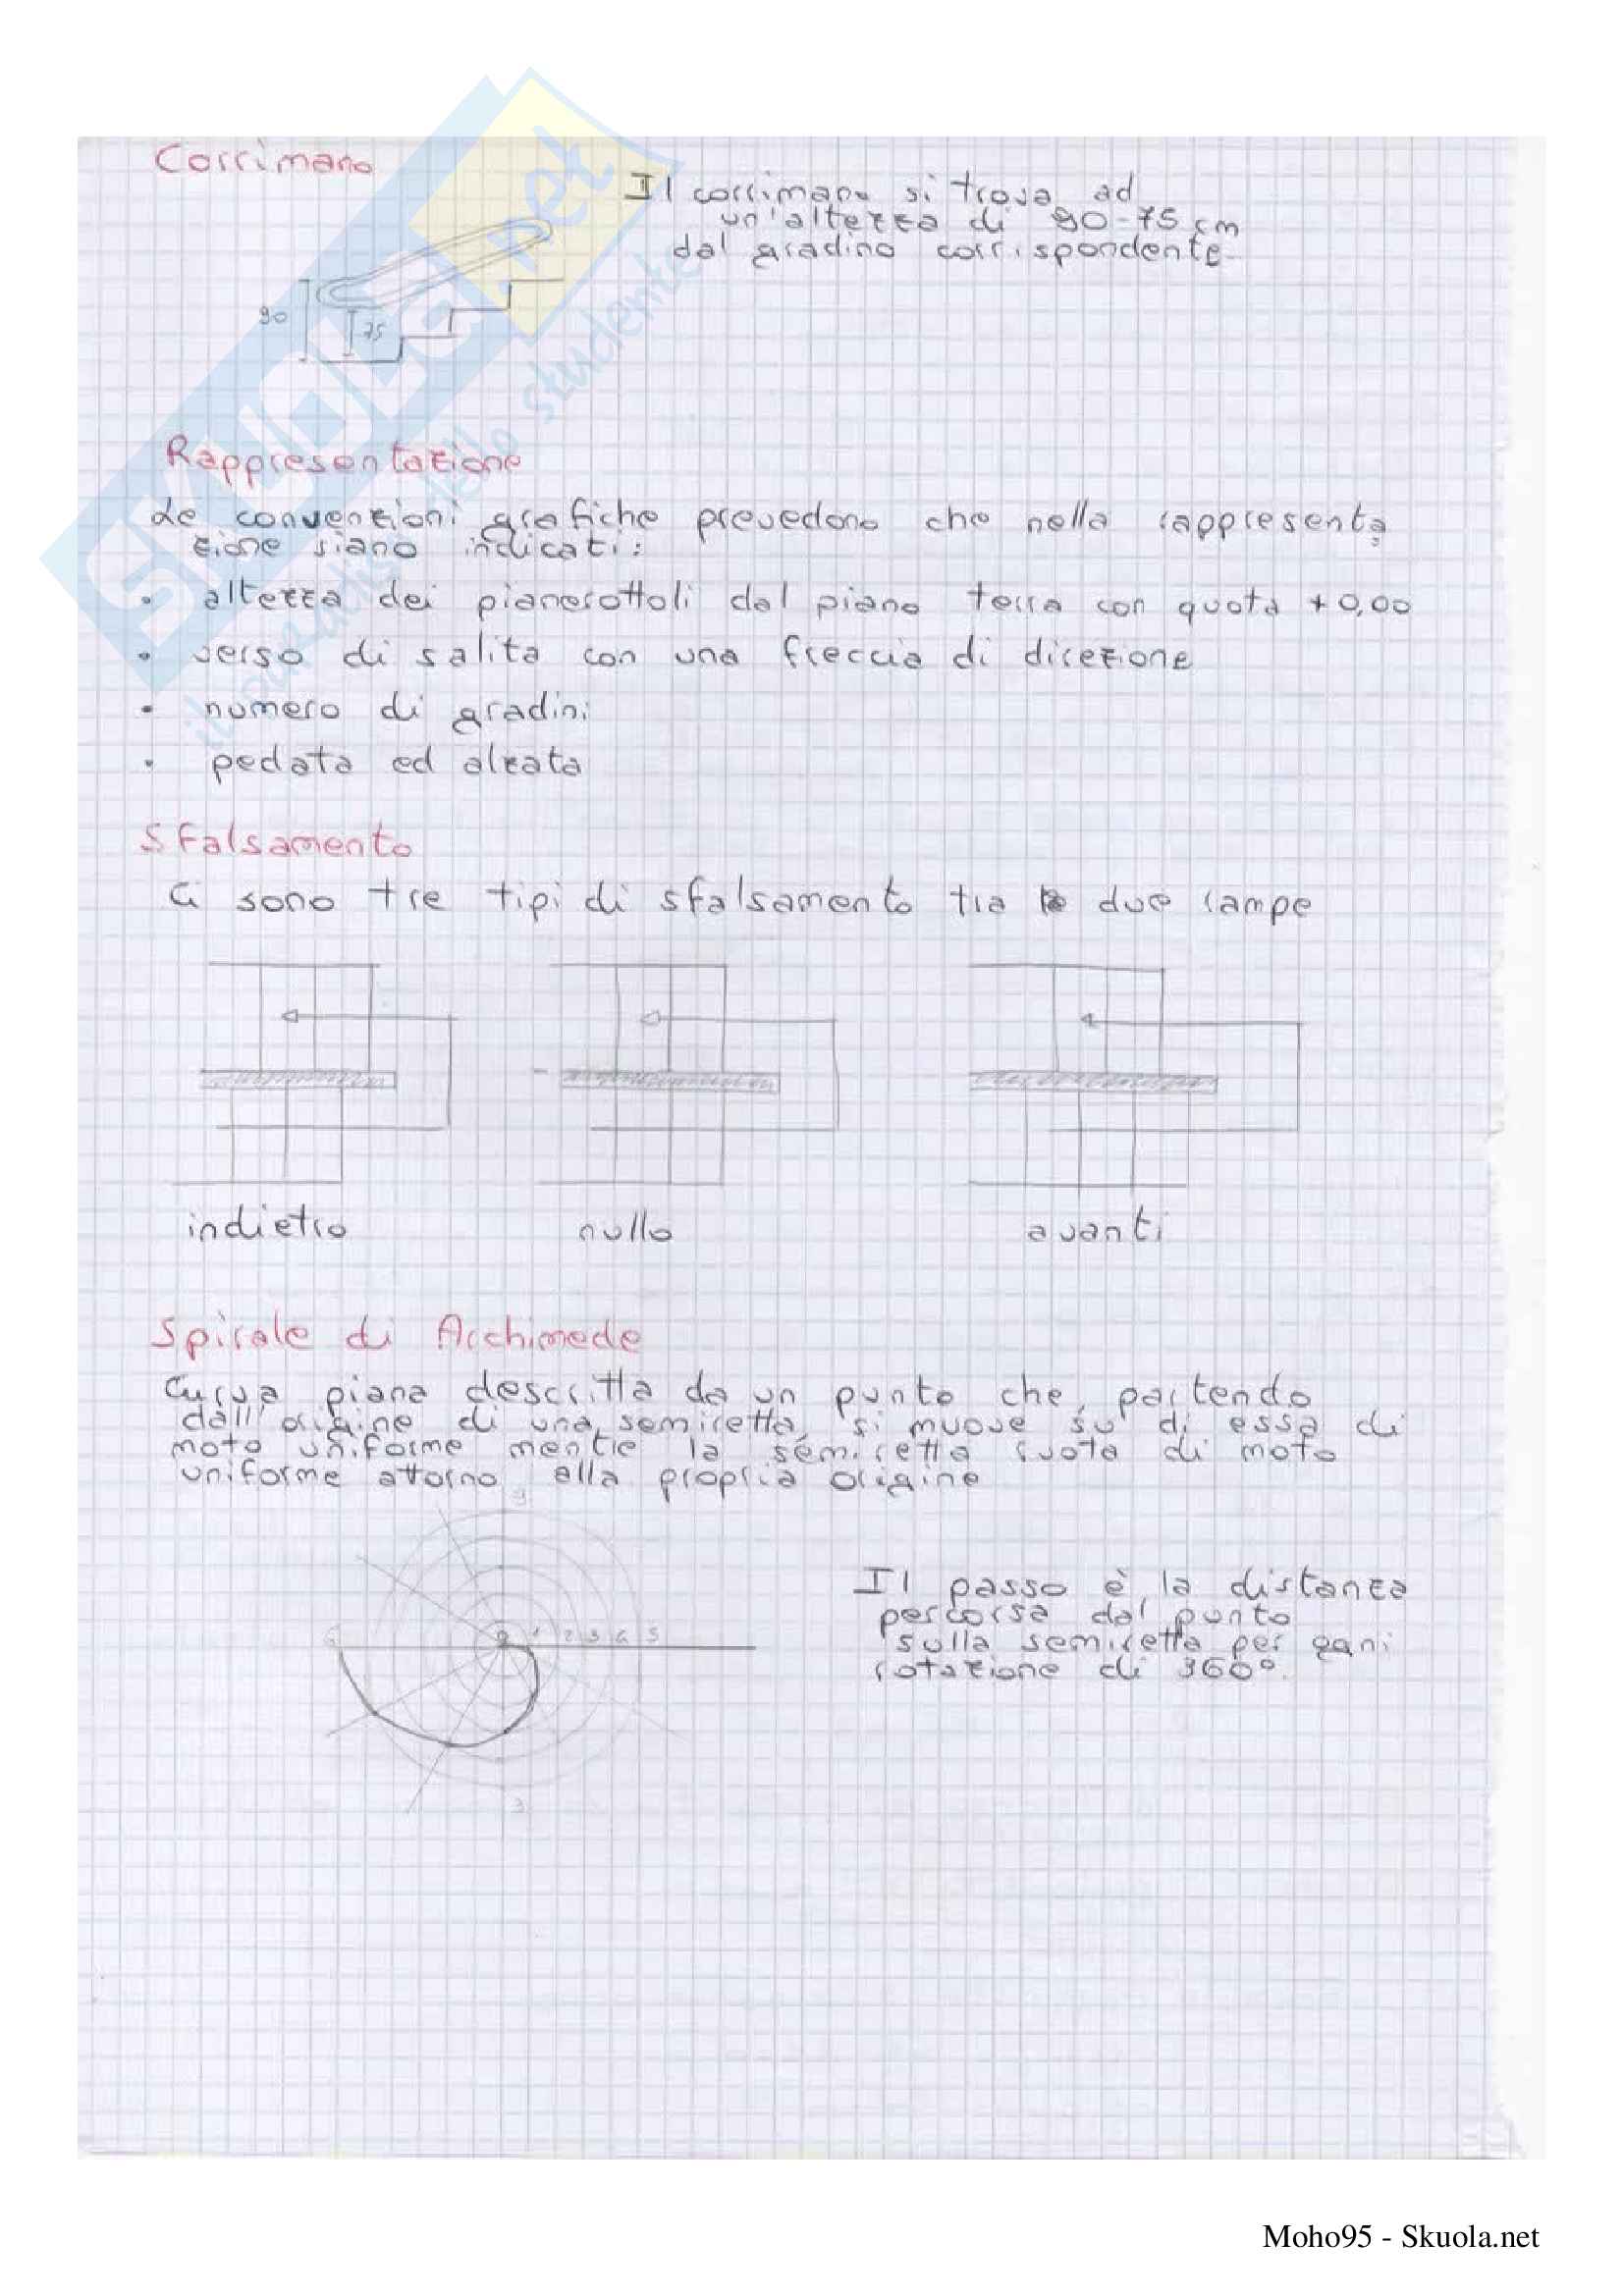 Corrimano
Il corrimano si trova ad
un'altezza di 90-75 cm
dal gradino corrispondente
90
75
Rappresentazione
Le convenzioni grafiche prevedono che nella rappresenta
zione siano indicati:
• altezza dei pianerottoli dal piano terra con quota + 0,00
• verso di salita con una freccia di direzione
• numero di gradini
• pedata ed alzata
Sfalsamento
Ci sono tre tipi di sfalsamento tra due rampe
indietro nullo avanti
Spirale di Archimede
Curva piana descritta da un punto che, partendo
dall'origine di una semiretta, si muove su di essa di
moto uniforme mentre la semiretta ruota di moto
uniforme attorno alla propria origine
1 2 3 4 5
3
Il passo è la distanza
percorsa dal punto
sulla semiretta per ogni
rotazione di 360°.
SKUOLA.net
il portale dello studente
Moho95 - Skuola.net